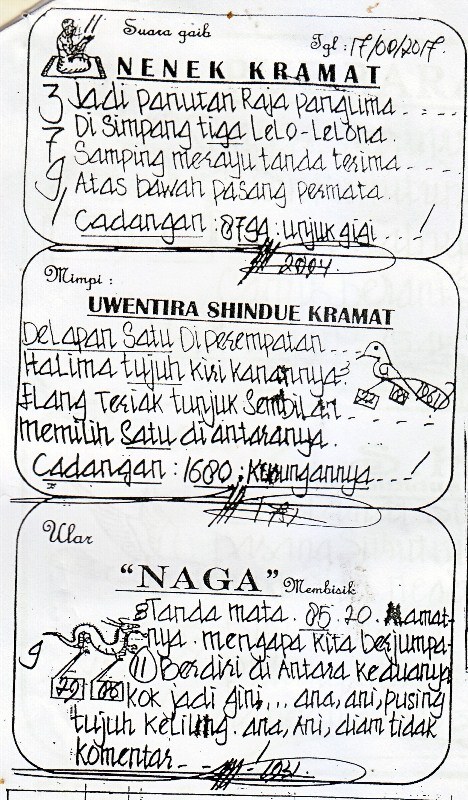 Suara gaib
Tgl : 17/00/2017
NENEK KRAMAT
3 Jadi panutan Raja panglima
7 Di Simpang tiga Lelo-Lelona
9, Samping merayu tanda terima
1 Atas bawah pasang permata
Cadangan : 8794 : unjuk gigi
2004
Mimpi :
UWENTIRA SHINDUE KRAMAT
Delapan Satu Diperempatan
Halima tujuh Kiri Kanannya
Elang Teriak tunjuk Sembilan
memilih Satu diantaranya
Cadangan : 1680 : Kepungannya
Ular
"NAGA" Membisik
Tanda mata. 85. 20. Mamat-
nya. mengapa kita berjumpa
9 11 Berdiri di Antara keduanya
29 08 kok jadi gini... ana, ani, pusing
tujuh Keliling. ana, Ani, diam tidak
komentar